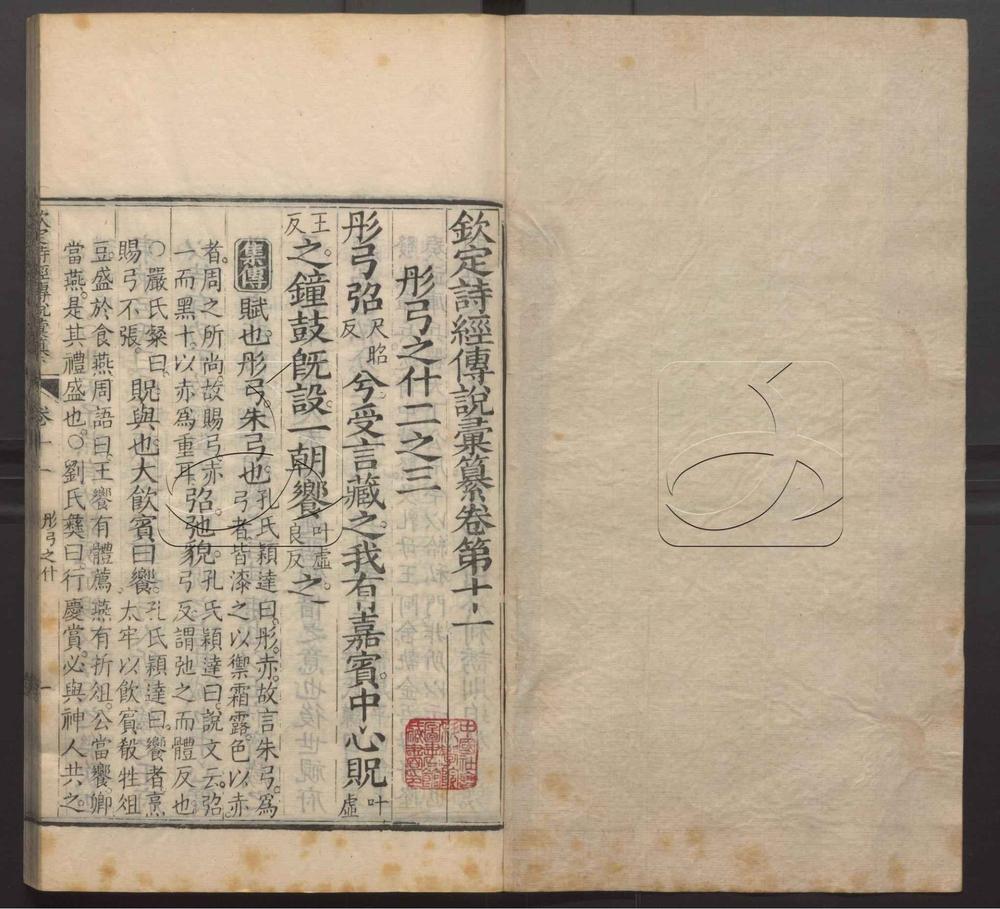 欽定詩經傳說彙纂卷第十一
彤弓之什二之三
彤弓弨尺昭反兮受言藏之我有嘉賓中心貺叶虛
王反之鐘鼓既設一朝饗叶虛良反之
集傳賦也彤弓朱弓也孔氏穎達曰彤赤故言朱弓爲
弓者皆漆之以禦霜露色以赤
者周之所尚故賜弓赤
一而黑十以赤爲重耳弨弛貌孔氏穎達曰說文云弨
弓反謂弛之而體反也
○嚴氏粲曰
賜弓不張貺與也大飲賓曰饗孔氏穎達曰饗者烹
太牢以飲賓殽牲俎
豆盛於食燕周語曰王饗有體薦燕有折俎公當饗卿
當燕是其禮盛也○劉氏彝曰行慶賞必與神人共之
卷十一
彤弓之什
一